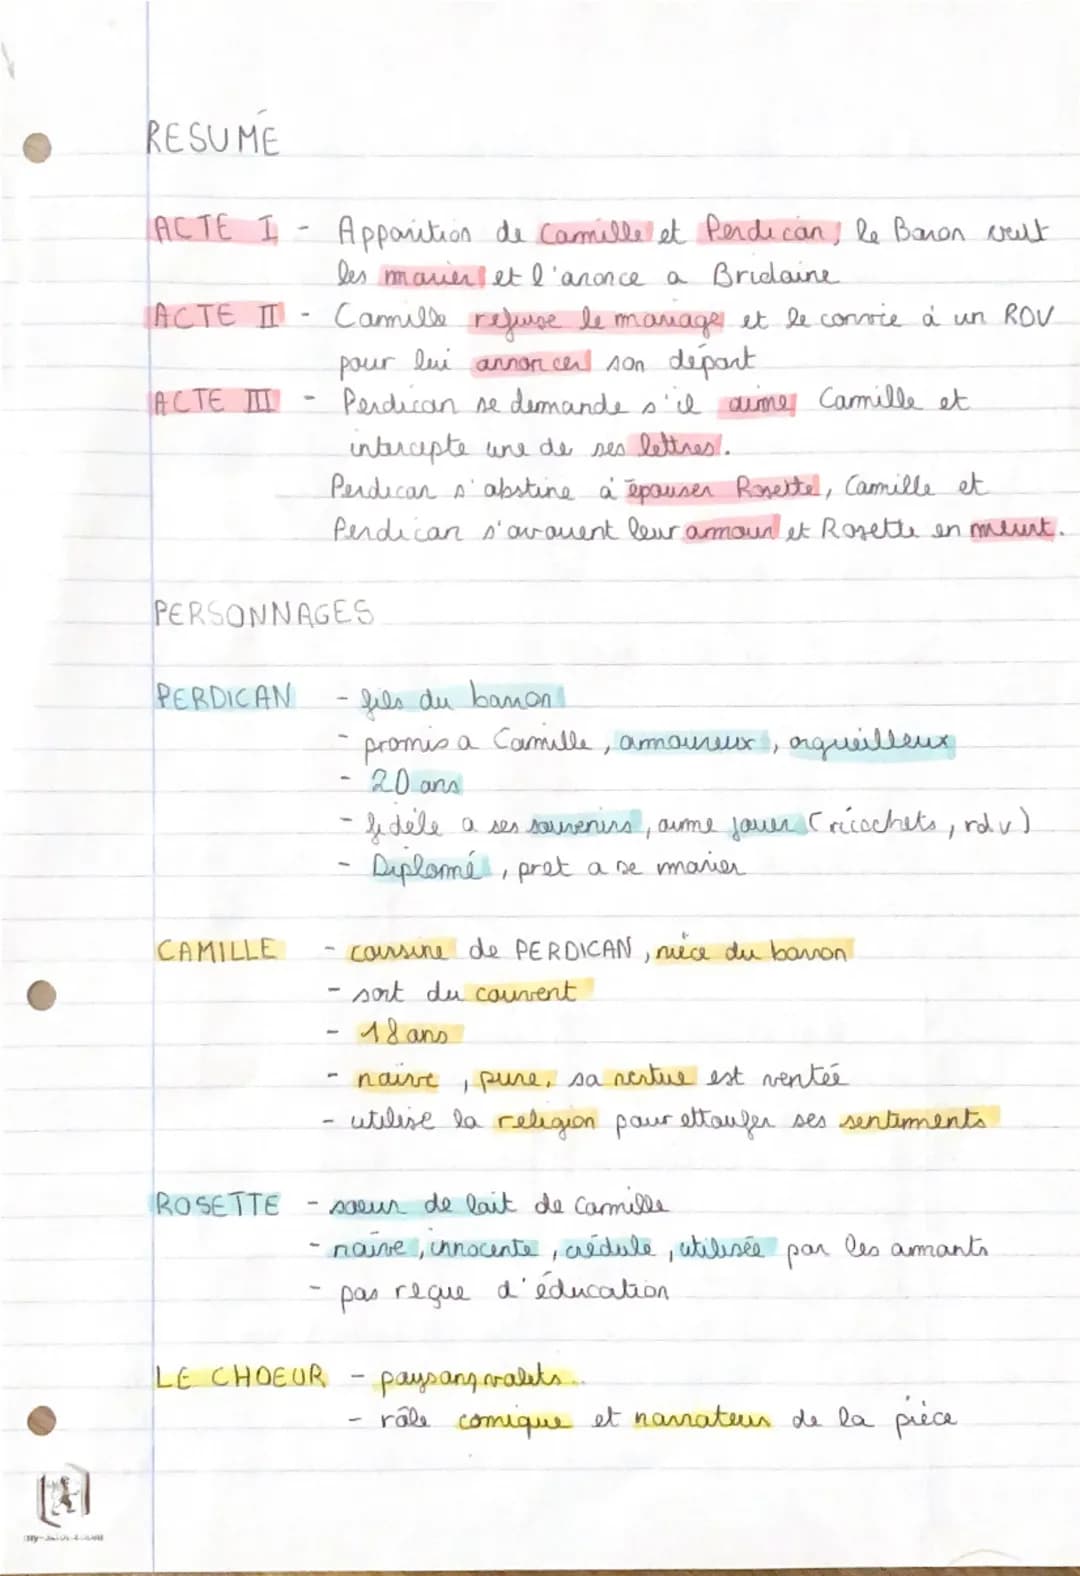 RESUMÉ
ACTE I - Apparition de Camille et Perdican, le Baron veut
les marier et l'anonce a Bridaine
ACTE II - Camille refuse le mariage et le convie à un RDV
pour lui annoncer son départ
ACTE III - Perdican se demande s'il aime Camille et
intercepte une de ses lettres.
Perdican s'abstine à épouser Rosette, Camille et
Perdican s'avouent leur amour et Rosette en meurt.
PERSONNAGES
PERDICAN - fils du baron
- promis a Camille, amoureux, orgueilleux
- 20 ans
- fidèle a ses souvenirs, aime jouer (ricochets, rdv)
- Diplomé, pret a se marier
CAMILLE - cousine de PERDICAN, nièce du baron
- sort du couvent
- 18 ans
- naive, pure, sa vertue est ventée
- utilise la religion pour ettoufer ses sentiments
ROSETTE - soeur de lait de Camille
- naïve, innocente, crédule, utilisée par les amants
- pas reçue d'éducation
LE CHOEUR - paysans, valets..
- rôle comique et narrateur de la pièce